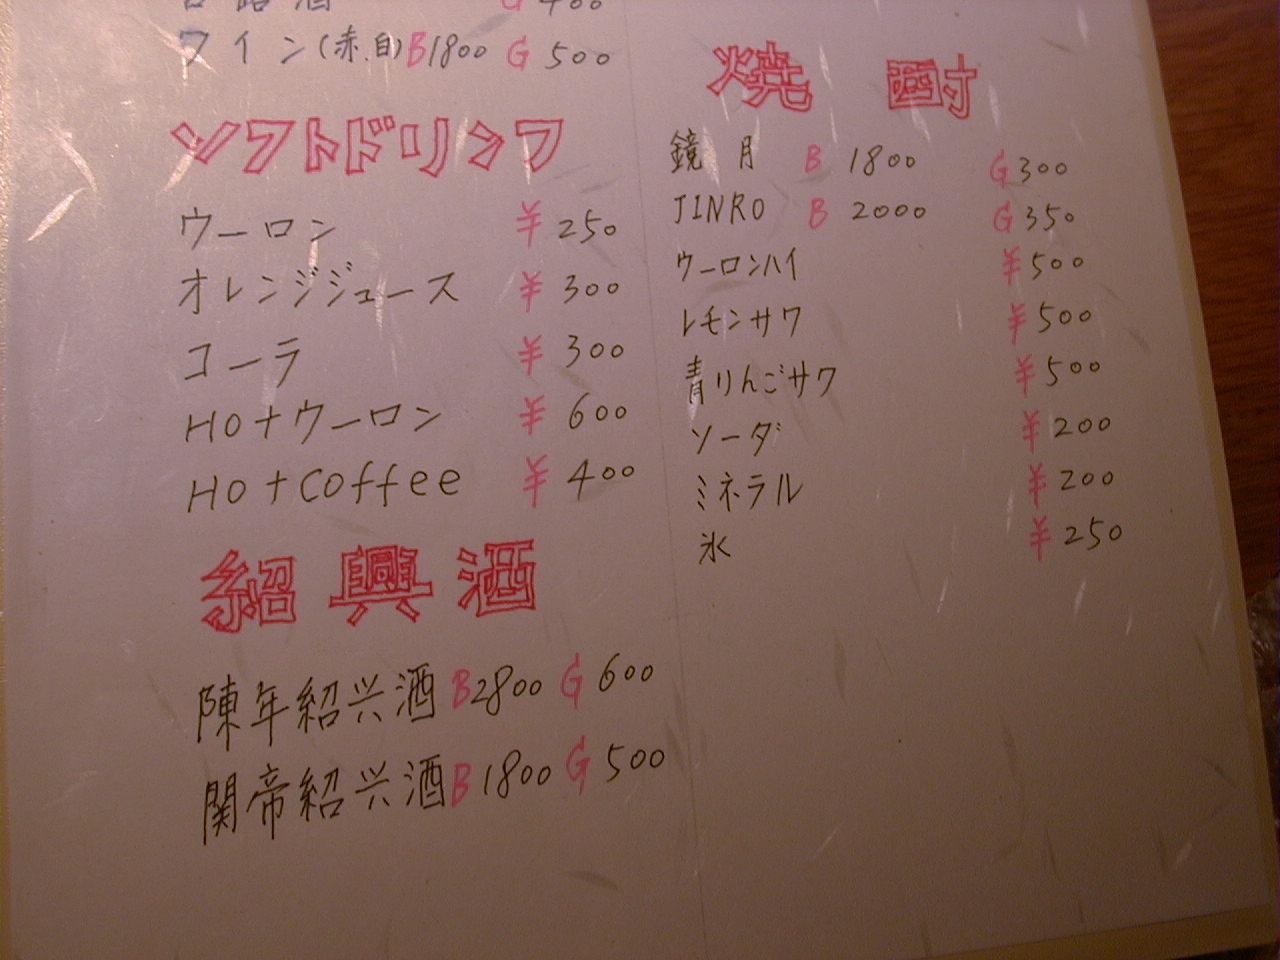 露酒 G 400
ワイン(赤.白) B1800 G 500
ソフトドリンフ
ウーロン ¥ 250
オレンジジュース ¥ 300
コーラ ¥ 300
HOtウーロン ¥ 600
HOtCoffee ¥ 400
紹興酒
陳年紹兴酒 B2800 G 600
関帝紹兴酒 B1800 G 500
焼酎
鏡月 B 1800 G 300
JINRO B 2000 G 350
ウーロンハイ ¥ 500
レモンサワ ¥ 500
青りんごサワ ¥ 500
ソーダ ¥ 200
ミネラル ¥ 200
氷 ¥ 250